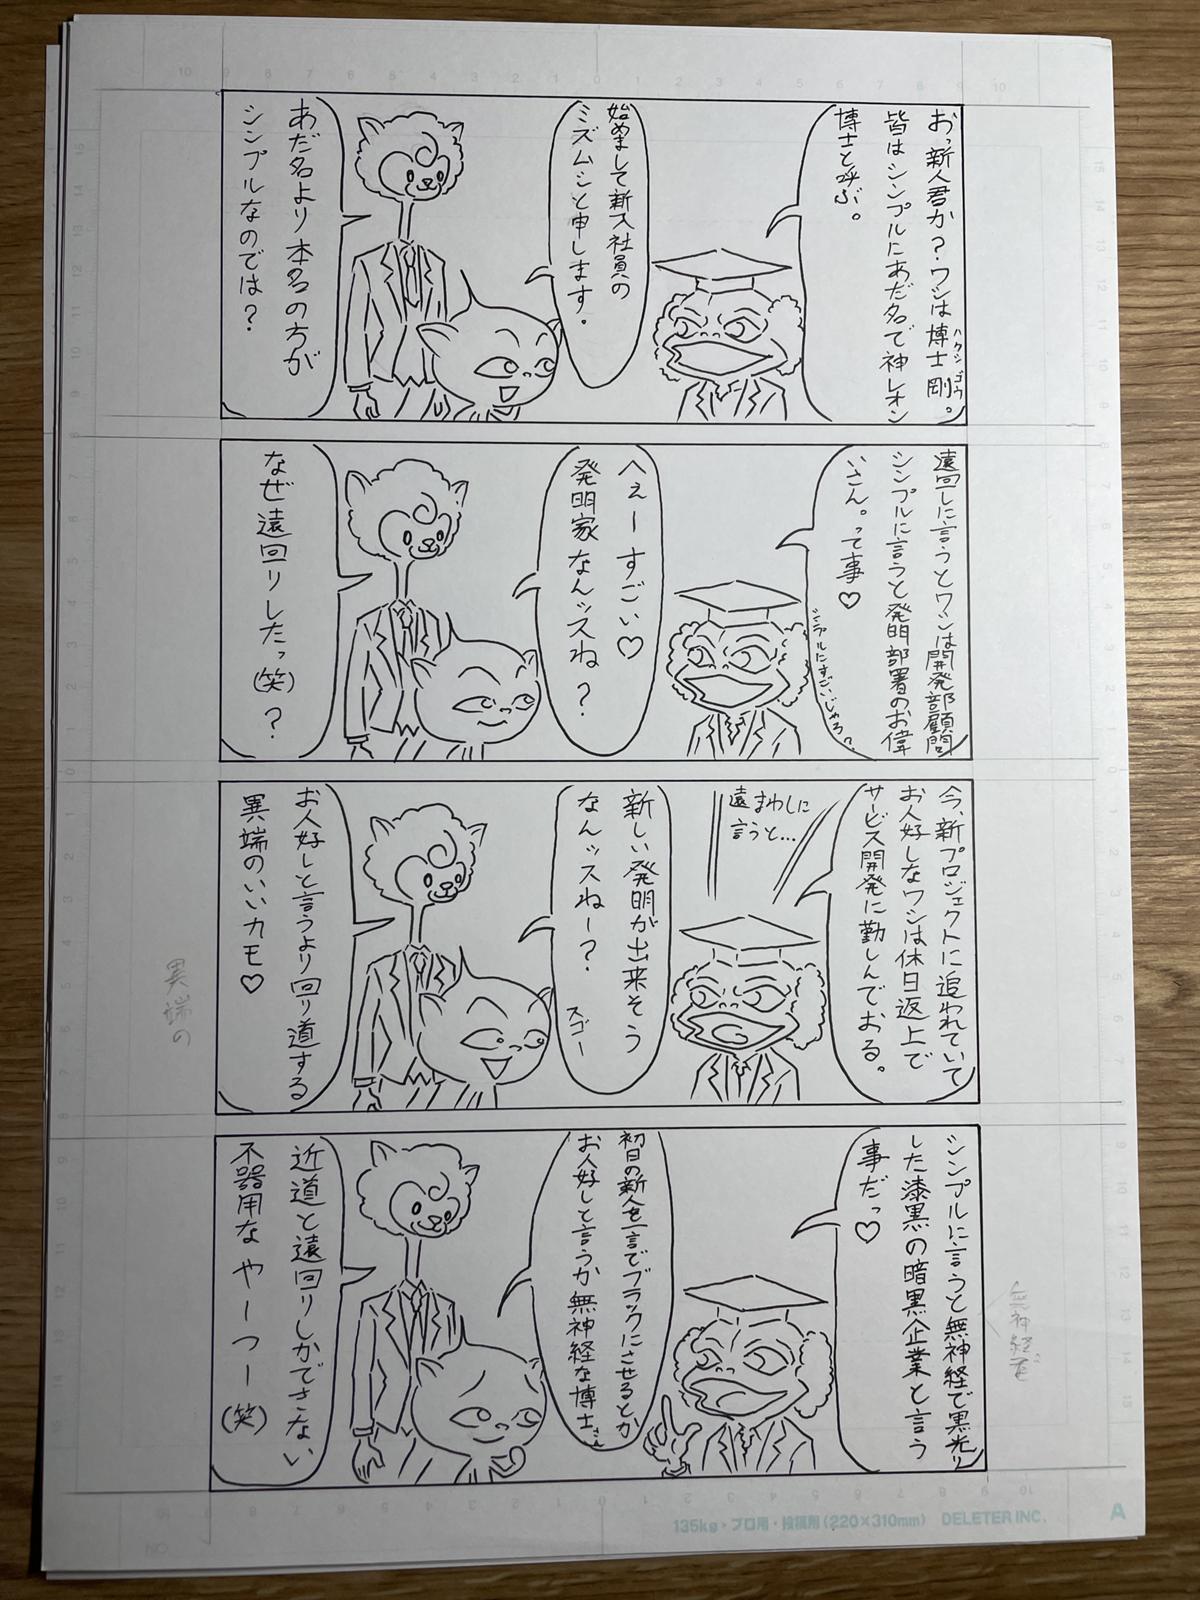 おっ新人君か?ワシは博士剛。
ハクシ ゴウ
皆はシンプルにあだ名で神レオン
博士と呼ぶ。
始めまして新入社員の
ミズムシと申します。
あだ名より本名の方が
シンプルなのでは?
遠回しに言うとワシは開発部顧問
シンプルに言うと発明部署のお偉
いさん。って事♡
シンプルにすごいじゃろ?
へぇーすごい♡
発明家なんッスね?
なぜ遠回りしたっ(笑)?
今、新プロジェクトに追われていて
お人好しなワシは休日返上で
サービス開発に勤しんでおる。
遠まわしに
言うと...
新しい発明が出来そう
なんッスねー?
スゴー
お人好しと言うより回り道する
異端のいいカモ♡
異端の
シンプルに言うと無神経で黒光り
した漆黒の暗黒企業と言う
事だっ♡
無神経
初日の新人を一言でブラックにさせるとか
お人好しと言うか無神経な博士さん
近道と遠回りしかできない
不器用なやーつー(笑)
135kg・プロ用・投稿用(220×310mm) DELETER INC. A